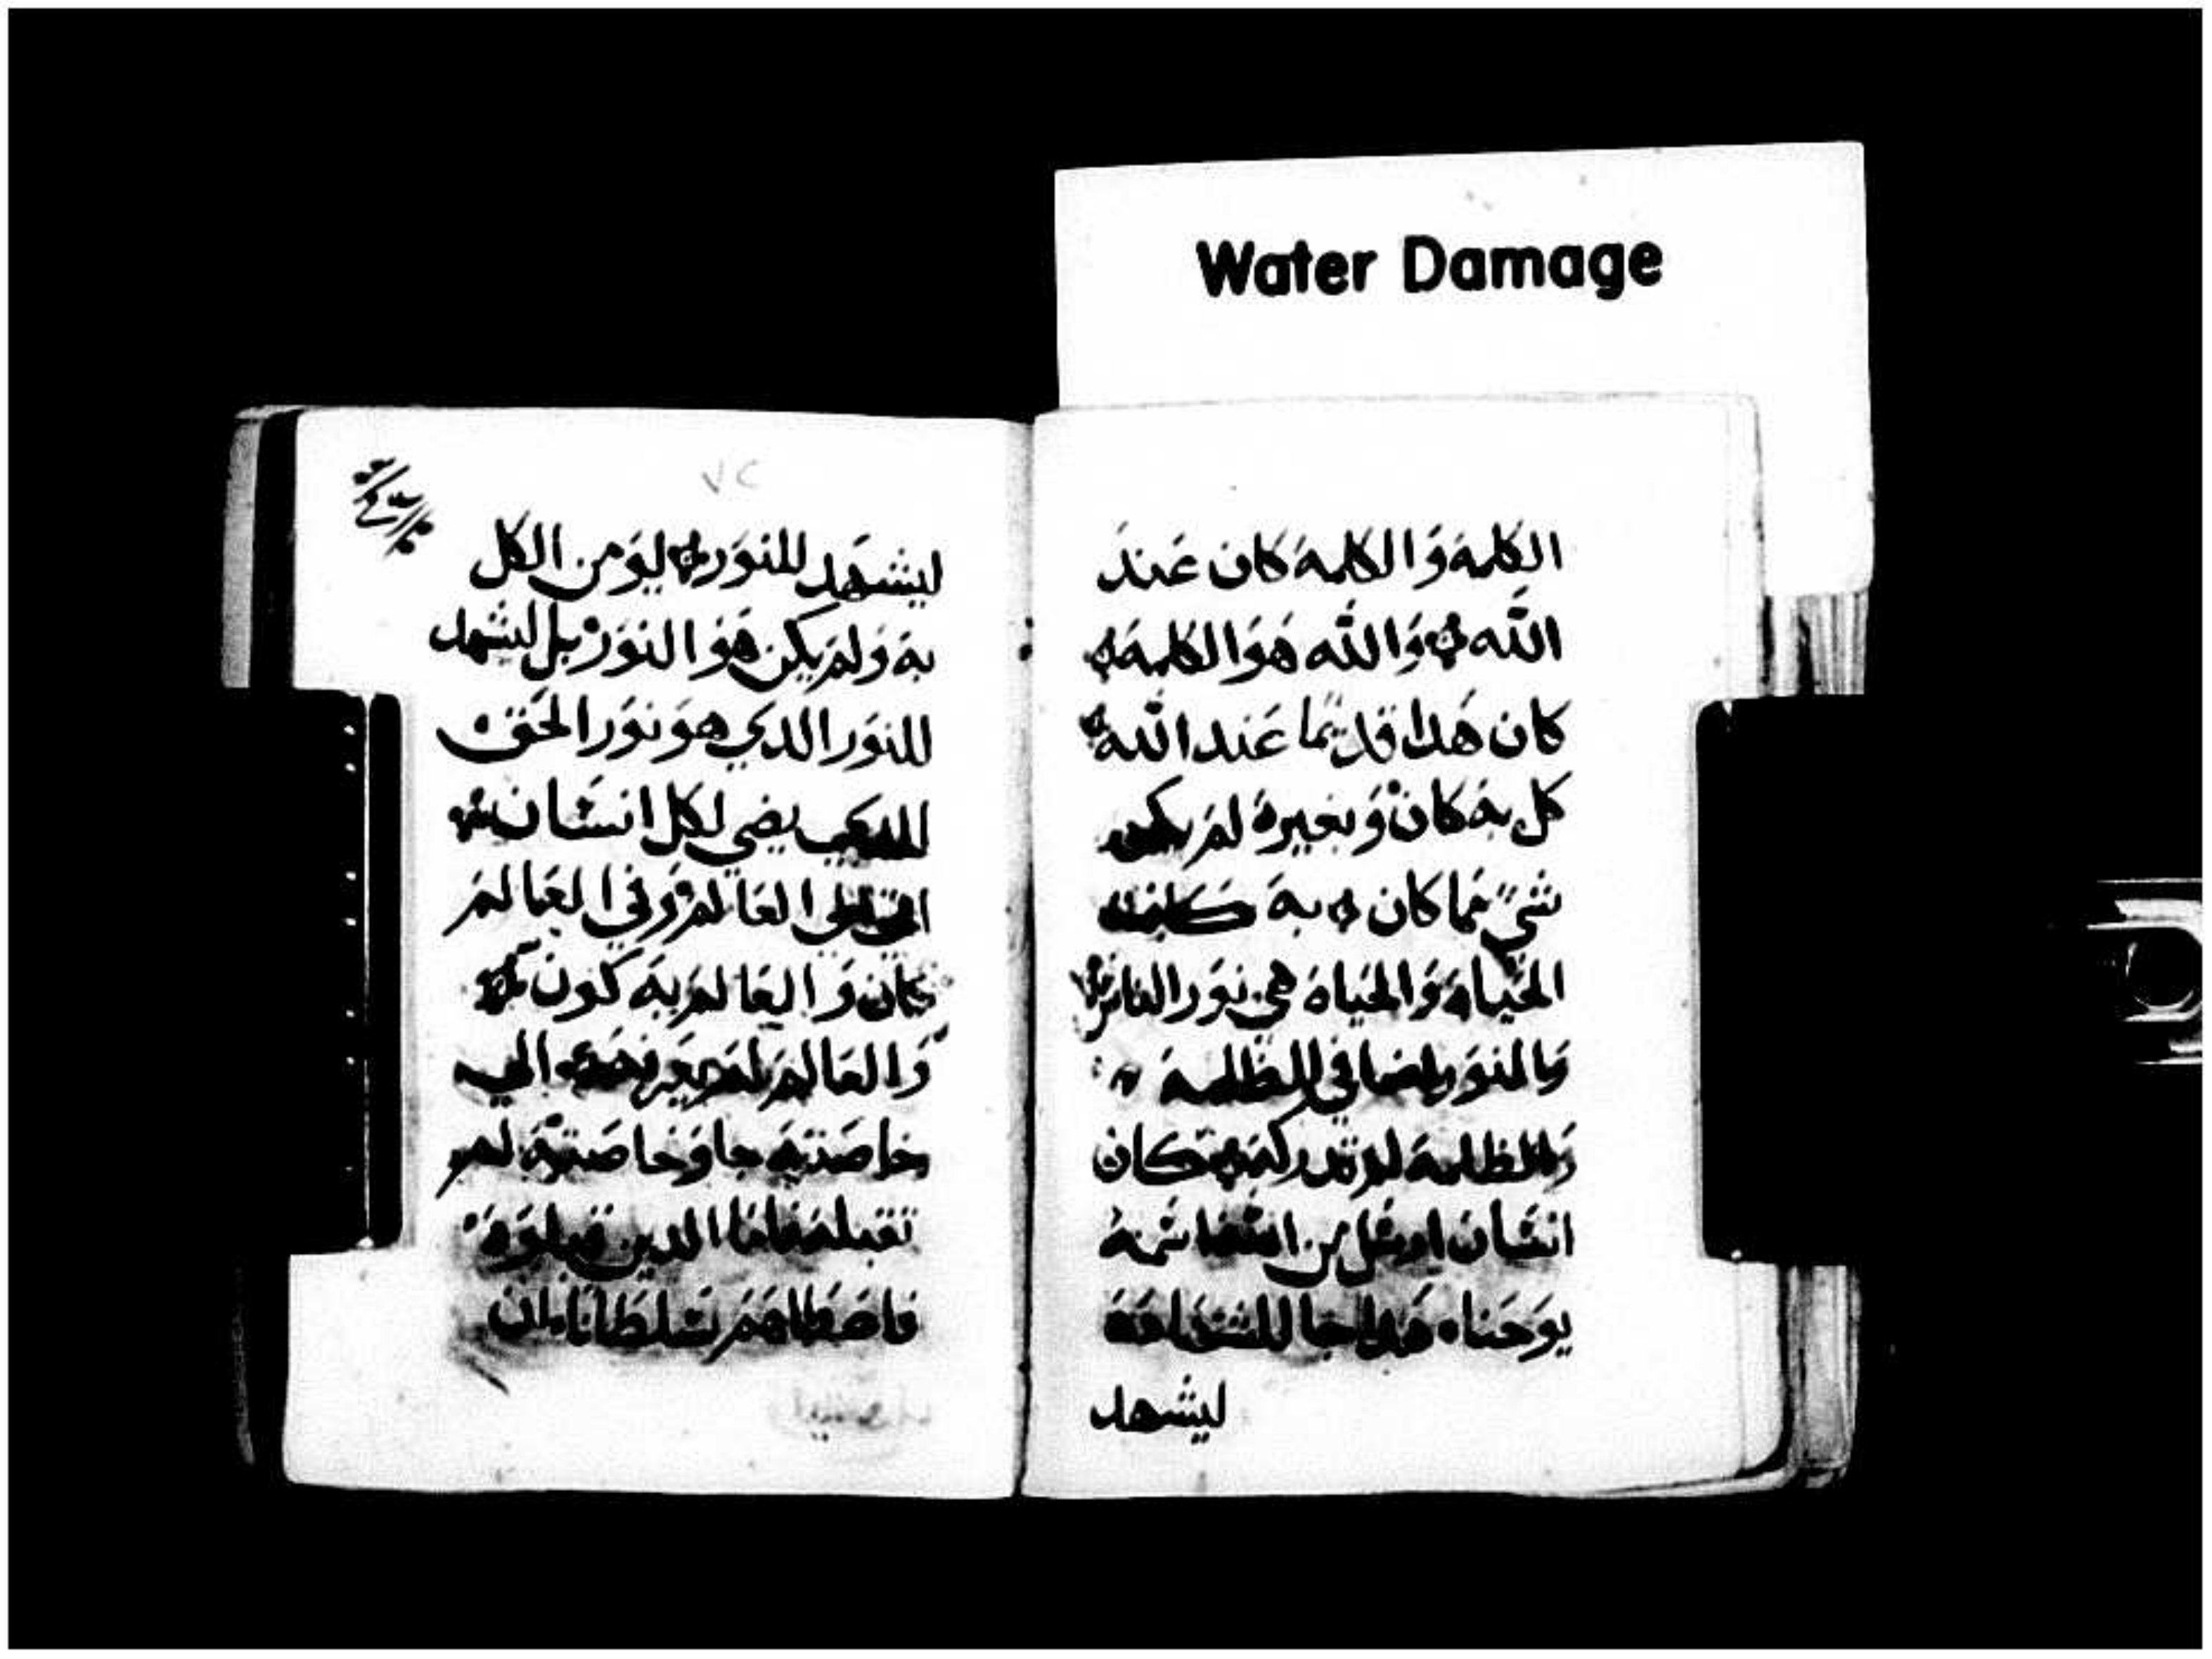 Water Damage
الكلمة والكلمة كان عند
الله والله هو الكلمة
كان هدا قديما عند الله
كل به كان وبغيره لم يكن
شي مما كان به كانت
الحياه والحياه هي نور الناس
والنور اضا في الظلمة
والظلمة لم تدركه كان
انسان ارسل من اسمه
يوحنا هدا جا للشهادة
ليشهد
٧٢
ليشهد للنور ليومن الكل
به ولم يكن هو النور بل ليشهد
للنور الدي هو نور الحق
الدي يضي لكل انسان
الي العالم وفي العالم
كان والعالم به كون
والعالم لم يعرفه الي
خاصته جا وخاصته لم
تقبله فاما الدين قبلوه
فاعطاهم سلطانا ان